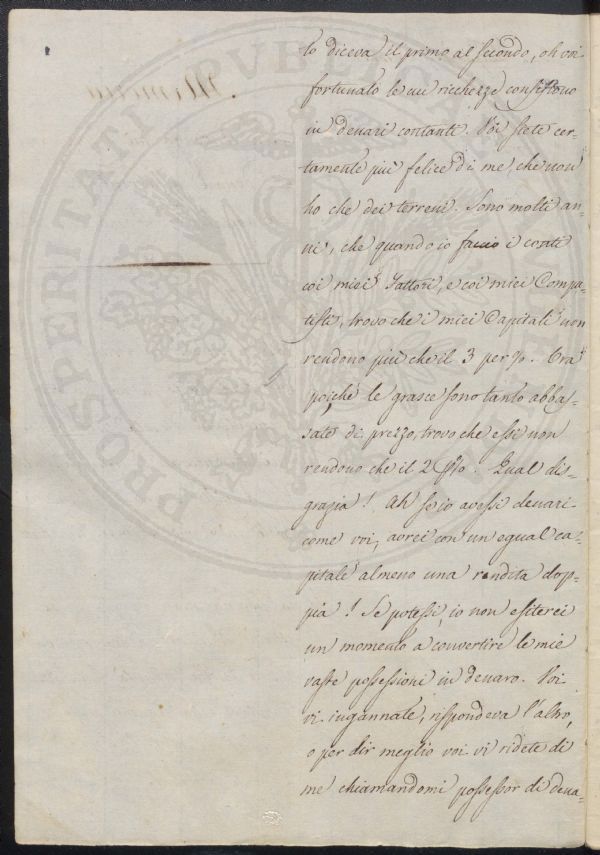 lo diceva il primo al secondo, oh voi
fortunato le cui ricchezze consistono
in denari contanti. Voi siete cer-
tamente più felice di me, che non
ho che dei terreni. Sono molti an-
ni, che quando io faccio i conti
coi miei Fattori, e coi miei Compu-
tisti, trovo che i miei Capitali non
rendono più che il 3 per %. Ora
poiché le grasce sono tanto abbas-
sate di prezzo, trovo che essi non
rendono che il 2 p%. Qual dis-
grazia! Ah se io avessi denari
come voi, avrei con un egual ca-
pitale almeno una rendita dop-
pia! Se potessi, io non esiterei
un momento a convertire le mie
vaste possessioni in denaro. Voi
vi ingannate, rispondeva l'altro,
o per dir meglio voi vi ridete di
me chiamandomi possessor di dena-
PROSPERITATI PVBLICAE